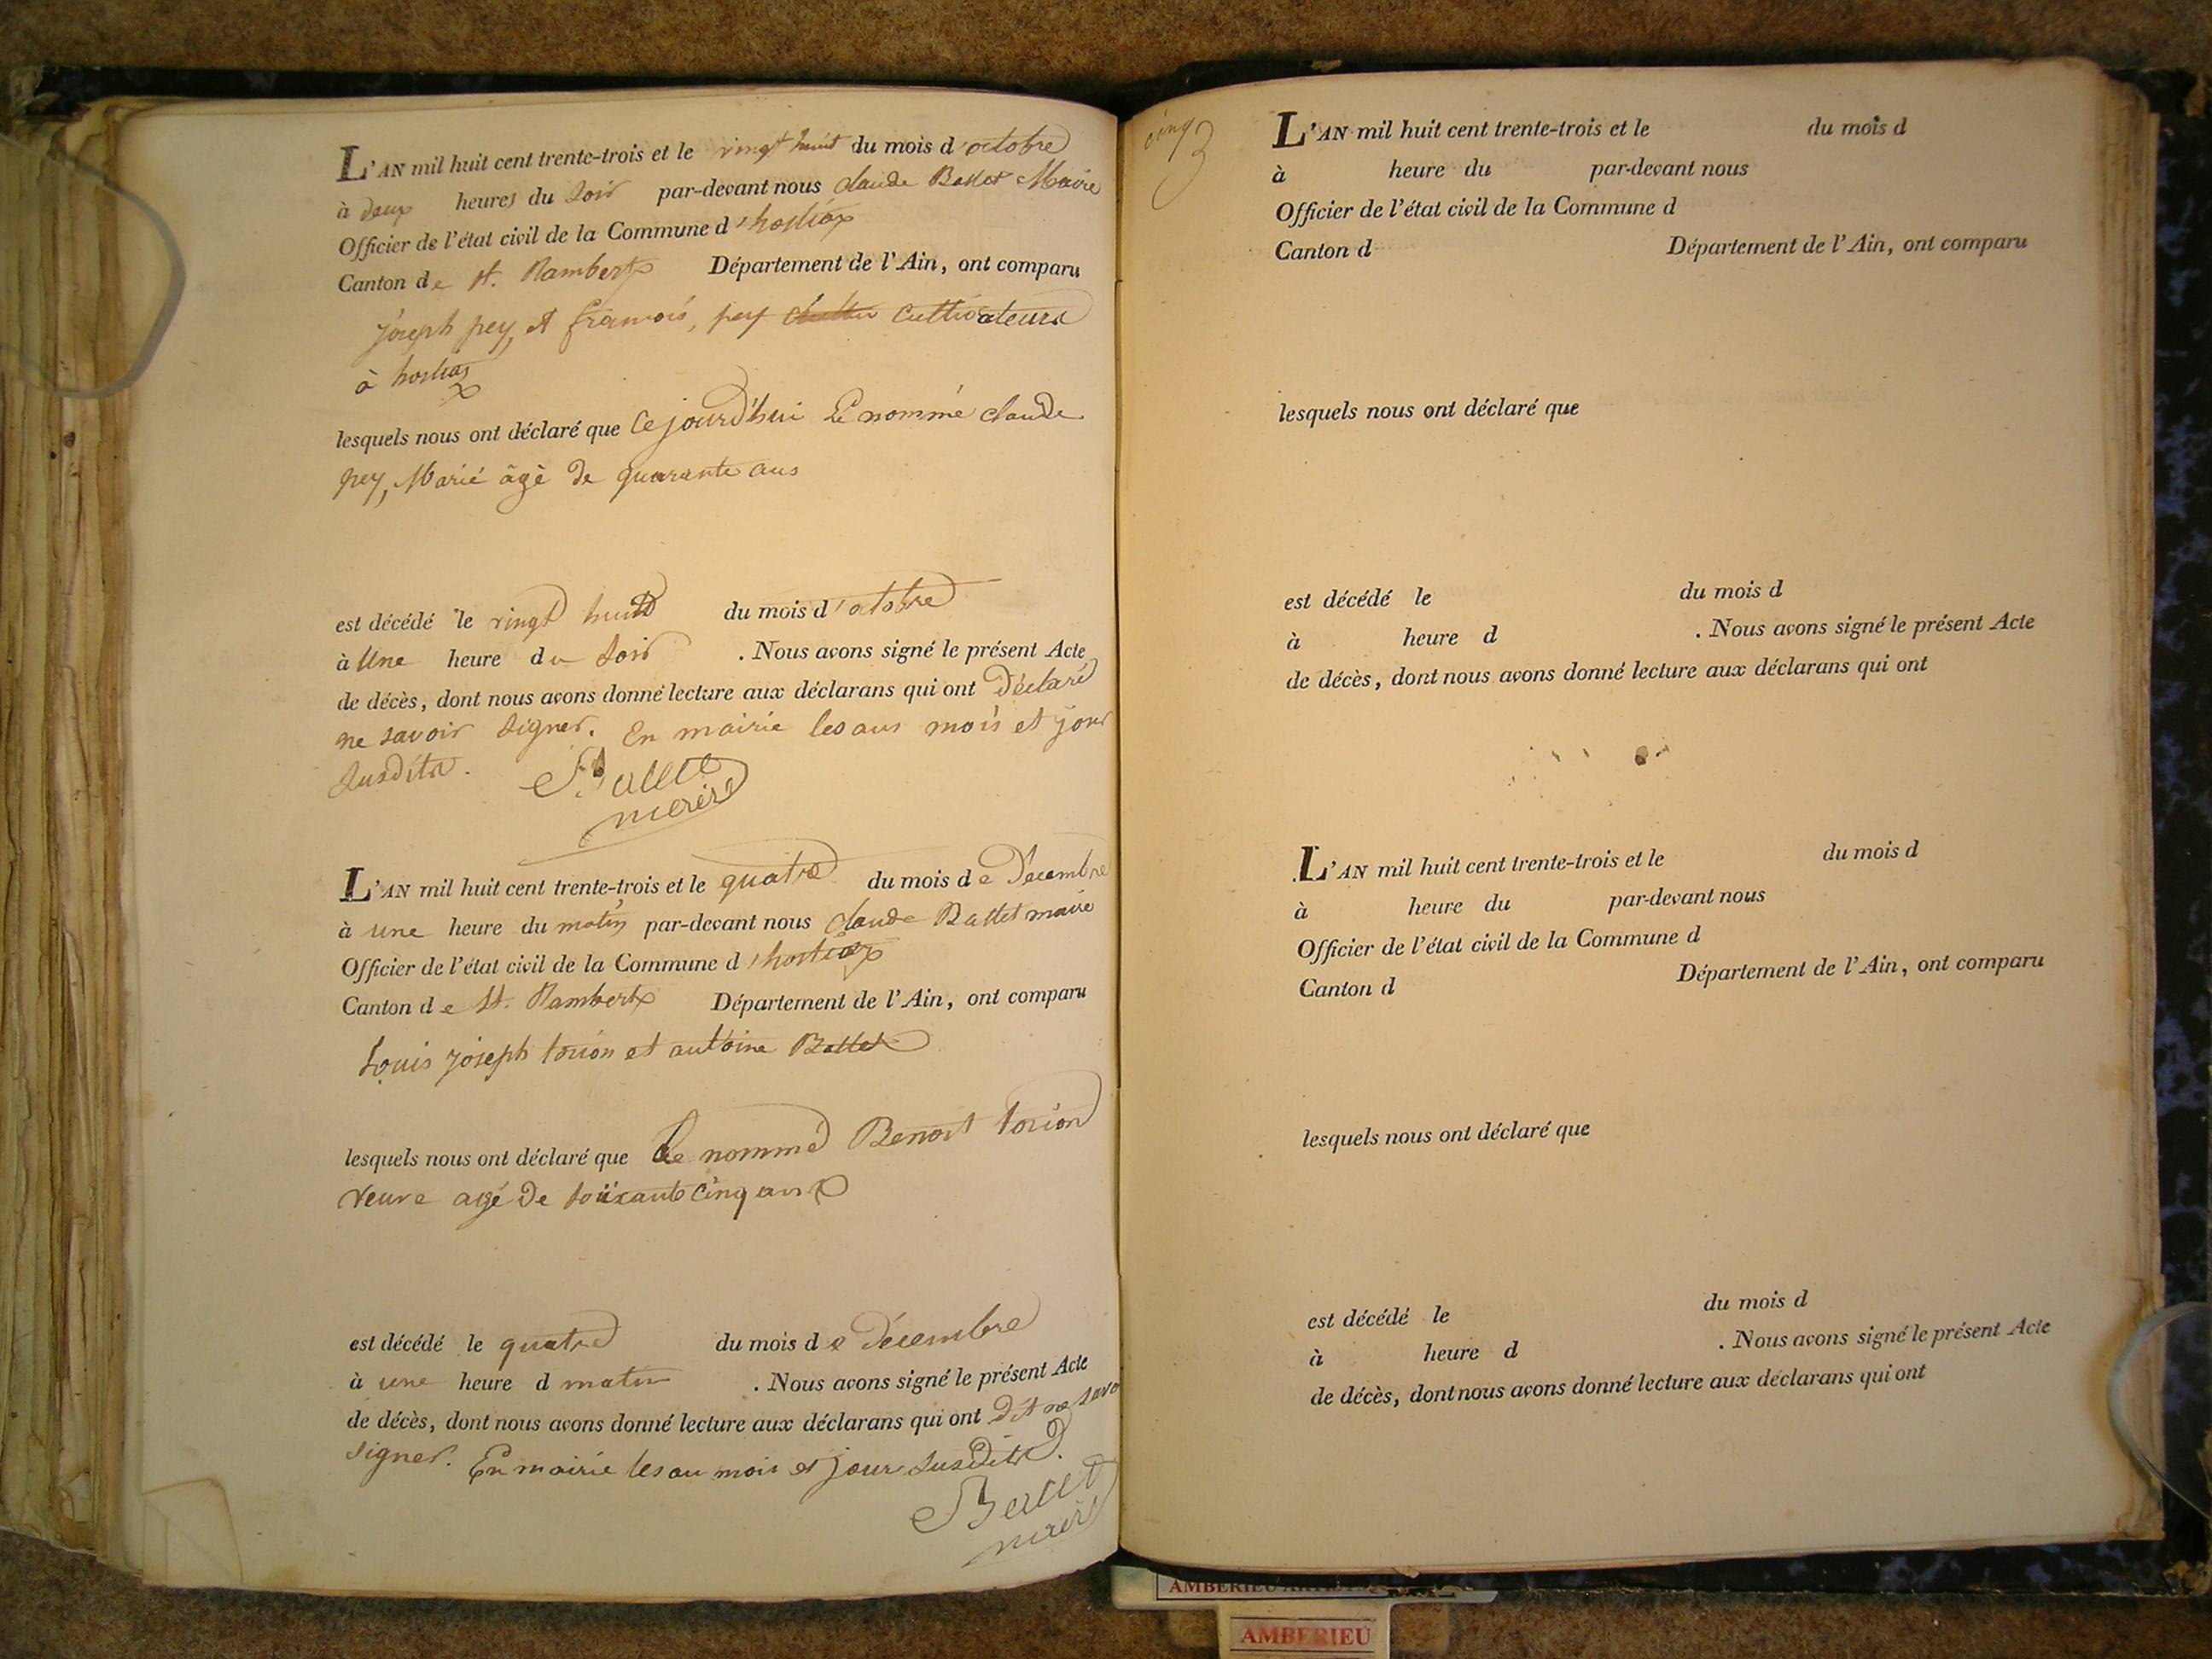 L'AN mil huit cent trente-trois et le vingt huit du mois d'octobre
à deux heures du soir par-devant nous claude Ballet Maire
Officier de l'état civil de la Commune d'hostiaz
Canton de st. Rambert Département de l'Ain, ont comparu
joseph pey, et françois, pey cultivateurs
à hostiaz
lesquels nous ont déclaré que Ce jourd'hui Le nommé claude
pey, Marié âgé de quarante ans
est décédé le vingt huit du mois d'octobre
à Une heure du soir . Nous avons signé le présent Acte
de décès, dont nous avons donné lecture aux déclarans qui ont déclaré
ne savoir signer. En mairie les ans mois et jour
susdits.
Ballet
maire
L'AN mil huit cent trente-trois et le quatre du mois de Décembre
à une heure du matin par-devant nous claude Ballet maire
Officier de l'état civil de la Commune d'hostiaz
Canton de St. Rambert Département de l'Ain, ont comparu
Louis joseph torion et antoine Ballet
lesquels nous ont déclaré que Le nommé Benoit torion
veuve agé de soixante cinq ans
est décédé le quatre du mois de Décembre
à une heure d matin . Nous avons signé le présent Acte
de décès, dont nous avons donné lecture aux déclarans qui ont dit ne savo
signer. En mairie les an mois et jour susdits.
Ballet
maire
cinq
L'AN mil huit cent trente-trois et le du mois d
à heure du par-devant nous
Officier de l'état civil de la Commune d
Canton d Département de l'Ain, ont comparu
lesquels nous ont déclaré que
est décédé le du mois d
à heure d . Nous avons signé le présent Acte
de décès, dont nous avons donné lecture aux déclarans qui ont
L'AN mil huit cent trente-trois et le du mois d
à heure du par-devant nous
Officier de l'état civil de la Commune d
Canton d Département de l'Ain, ont comparu
lesquels nous ont déclaré que
est décédé le du mois d
à heure d . Nous avons signé le présent Acte
de décès, dont nous avons donné lecture aux déclarans qui ont
AMBERIEU
AMBERIEU